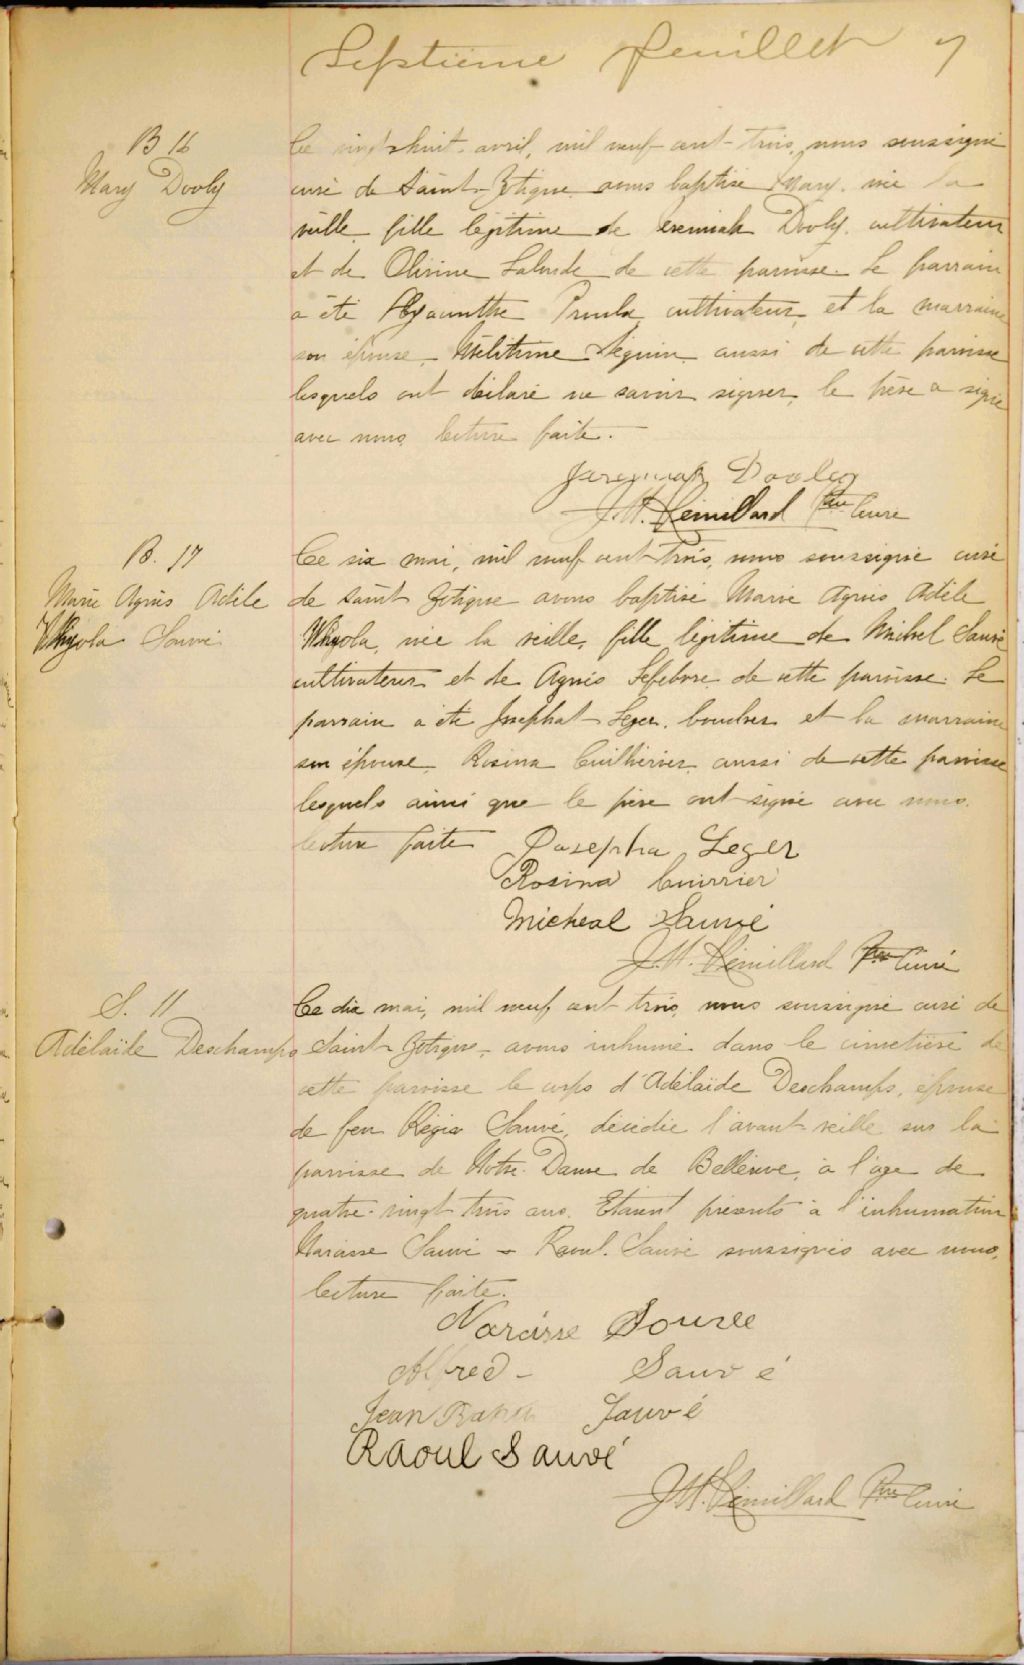 Septième feuillet 7
B 16
Mary Dooly
Ce vingt-huit avril, mil neuf cent trois, nous soussigné
curé de Saint-Zotique avons baptisé Mary, née la
veille, fille légitime de Jeremiah Dooly, cultivateur
et de Olivine Lalonde de cette paroisse. Le parrain
a été Hyacinthe Proulx, cultivateur, et la marraine
son épouse, Mélitime Séguin, aussi de cette paroisse
lesquels ont déclaré ne savoir signer, le père a signé
avec nous, lecture faite.
Jeremiah Dooley
J.M. Rémillard Ptre Curé
B. 17
Marie Agnès Adèle
Sauvé
Ce six mai, mil neuf cent trois, nous soussigné curé
de Saint Zotique avons baptisé Marie Agnès Adèle
née la veille, fille légitime de Michel Sauvé
cultivateur et de Agnès Lefebvre de cette paroisse. Le
parrain a été Josephat Leger, boucher et la marraine
son épouse, Rosina Cuillierier, aussi de cette paroisse
lesquels ainsi que le père ont signé avec nous,
lecture faite
Josepha Leger
Rosina Cuirrier
Micheal Sauvé
J.M. Rémillard Ptre Curé
S. 11
Adélaïde Deschamps
Ce dix mai, mil neuf cent trois, nous soussigné curé de
Saint-Zotique, avons inhumé dans le cimetière de
cette paroisse le corps d'Adélaïde Deschamps, épouse
de feu Régis Sauvé, décédée l'avant-veille sur la
paroisse de Notre-Dame de Bellerive, à l'âge de
quatre-vingt trois ans. Etaient présents à l'inhumation
Narcisse Sauvé & Raoul Sauvé soussignés avec nous,
lecture faite.
Narcisse Souvee
Alfred - Sauvé
Jean Sauvé
Raoul Sauvé
J.M. Rémillard Ptre Curé